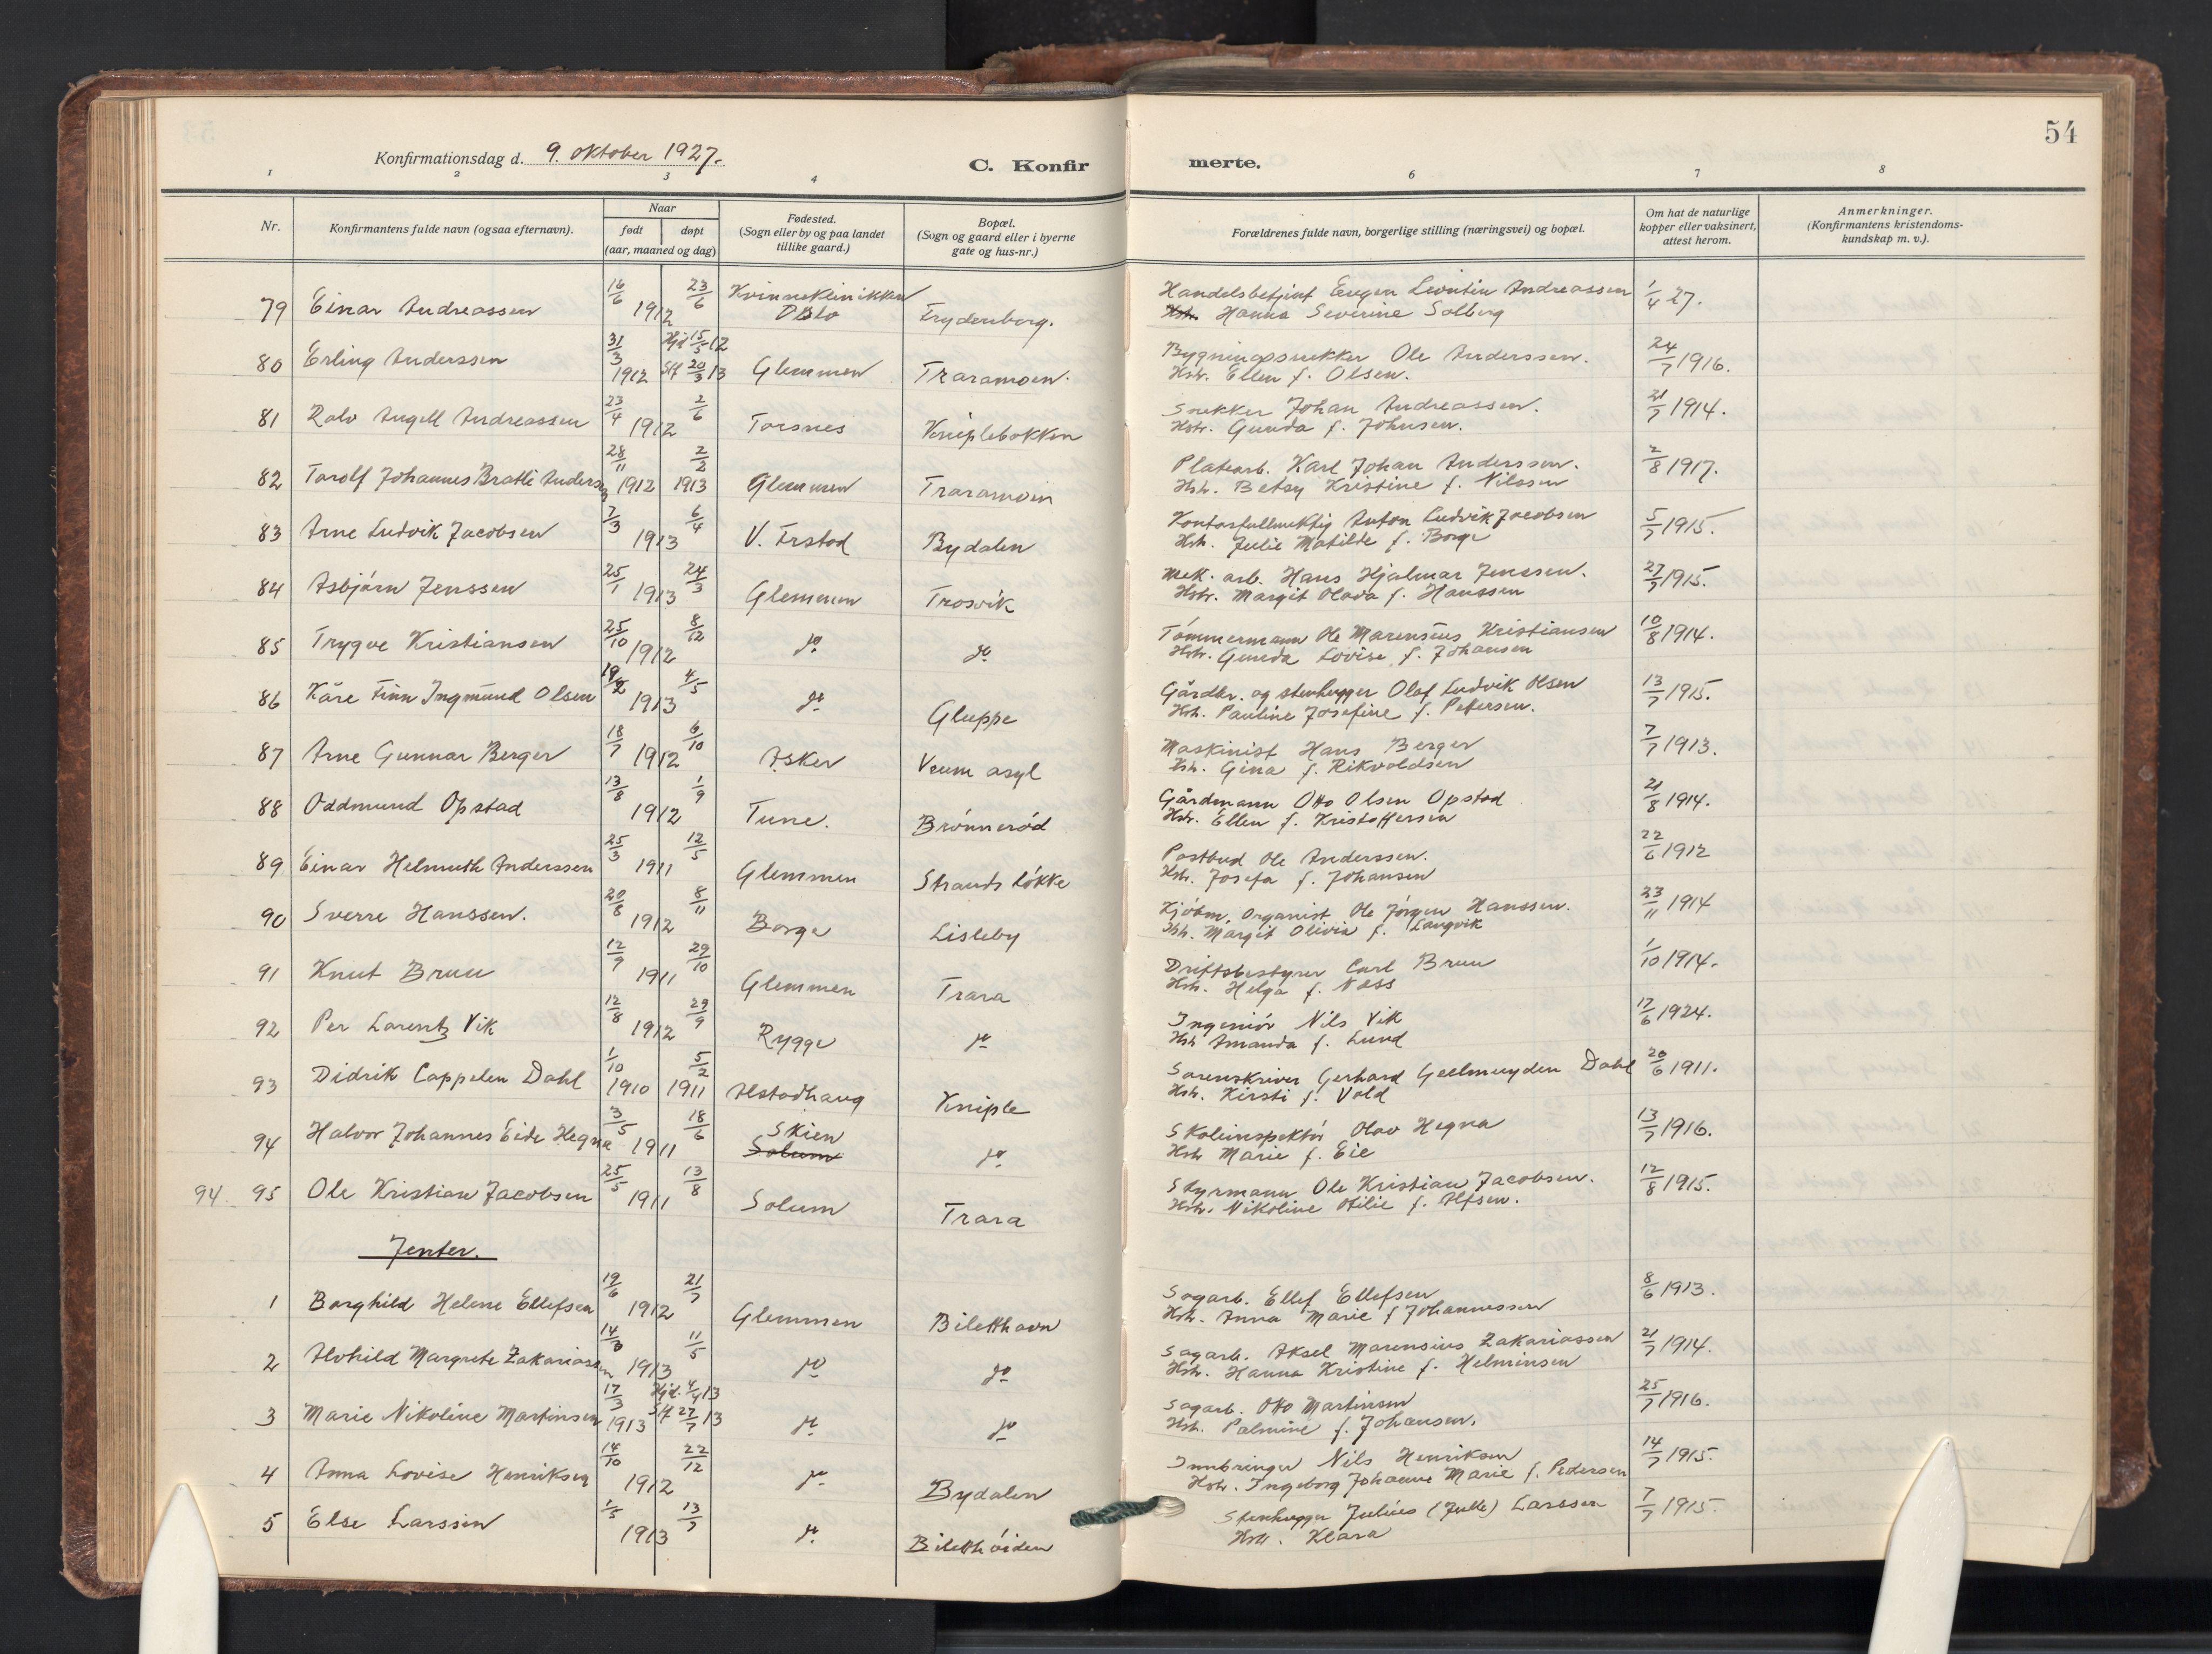 54
Konfirmationsdag d. 9. oktober 1927.
C. Konfirmerte.
1 2 3 4 6 7 8
Nr.
Konfirmantens fulde navn (ogsaa efternavn).
Naar
født døpt
(aar, maaned og dag)
Fødested.
(Sogn eller by og paa landet
tillike gaard.)
Bopæl.
(Sogn og gaard eller i byerne
gate og hus-nr.)
Forældrenes fulde navn, borgerlige stilling (næringsvei) og bopæl.
Om hat de naturlige
kopper eller vaksinert,
attest herom.
Anmerkninger.
(Konfirmantens kristendoms-
kundskap m. v.).
79 Einar Andreassen 16/6 1912 23/6 Kvinneklinikken Oslo Frydenberg. Handelsbetjent Eugen Leontin Andreassen 1/4 27.
Hstr. Hanna Severine Solberg
80 Erling Anderssen 31/3 1912 Hjd 15/5 12 Stf 20/3 13 Glemmen Traramoen. Bygningssnekker Ole Anderssen. 24/7 1916.
Hstr. Ellen f. Olsen.
81 Rolv Angell Andreassen 23/4 1912 2/6 Torsnes Kniplebakken Snekker Johan Andreassen. 21/7 1914.
Hstr. Gunda f. Johnsen.
82 Torolf Johannes Bratli Anderssen 28/11 1912 2/2 1913 Glemmen Traramoen Platearb. Karl Johan Anderssen. 2/8 1917.
Hstr. Betsy Kristine f. Nilssen
83 Arne Ludvik Jacobsen 7/3 1913 6/4 V. Frstad Bydalen Kontorfullmektig Anton Ludvik Jacobsen 5/7 1915.
Hstr. Julie Matilde f. Borge
84 Asbjørn Jenssen 25/1 1913 24/3 Glemmen Trosvik Mek. arb. Hans Hjalmar Jenssen. 27/7 1915.
Hstr. Margit Olava f. Hanssen
85 Trygve Kristiansen 25/10 1912 8/12 do do Tømmermann Ole Marensius Kristiansen 10/8 1914.
Hstr. Gunda Lovise f. Johansen
86 Kåre Finn Ingmund Olsen 19/2 1913 4/5 do Gluppe Gårdbr. og stenhugger Olaf Ludvik Olsen 13/7 1915.
Hstr. Pauline Josefine f. Petersen.
87 Arne Gunnar Berger 18/7 1912 6/10 Asker Veum asyl Maskinist Hans Berger 7/7 1913.
Hstr. Gina f. Rikvoldsen
88 Oddmund Opstad 13/8 1912 1/9 Tune. Brønnerød Gårdmann Otto Olsen Opstad 21/8 1914.
Hstr. Ellen f. Kristoffersen
89 Einar Helmuth Anderssen 25/3 1911 12/5 Glemmen Strands løkke Postbud Ole Anderssen. 22/6 1912
Hstr. Josefa f. Johansen
90 Sverre Hanssen. 20/8 1912 8/11 Borge Lisleby Kjøbm. Organist Ole Jørgen Hanssen. 23/11 1914
Hstr. Margit Olivia f. Langvik
91 Knut Bruu 12/9 1911 29/10 Glemmen Trara Driftsbestyrer Carl Bruu 1/10 1914.
Hstr. Helga f. Næss
92 Per Lorentz Vik 12/8 1912 29/9 Rygge do Ingeniør Nils Vik 17/6 1924.
Hstr Amanda f. Lund
93 Didrik Cappelen Dahl 1/10 1910 5/2 1911 Alstadhaug Kniple Sorenskriver Gerhard Geelmuyden Dahl 20/6 1911.
Hstr. Kirsti f. Vold
94 Halvor Johannes Eide Hegna 3/5 1911 18/6 Skien Solum do Skoleinspektør Olav Hegna 13/7 1916.
Hstr Marie f. Eie
94. 95 Ole Kristian Jacobsen 25/5 1911 13/8 Solum Trara Styrmann Ole Kristian Jacobsen. 12/8 1915.
Hstr. Nikoline Otilie f. Alfsen.
Jenter.
1 Borghild Helene Ellefsen 19/6 1912 21/7 Glemmen Biletthavn Sagarb. Ellef Ellefsen 8/6 1913.
Hstr. Anna Marie f Johannessen
2 Alvhild Margrete Zakariassen 14/3 1913 11/5 do do Sagarb. Aksel Marensius Zakariassen 21/7 1914.
Hstr. Hanna Kristine f. Helminsen
3 Marie Nikoline Martinsen 17/3 1913 Hjd. 4/4 13 Stf 27/7 13 do do Sagarb. Otto Martinsen 25/7 1916.
Hstr. Palmine f. Johansen.
4 Anna Lovise Henriksen 14/10 1912 22/12 do Bydalen Innbringer Nils Henriksen 14/7 1915.
Hstr. Ingeborg Johanne Marie f. Pedersen
5 Else Larssen 1/5 1913 13/7 do Biletthøiden Stenhugger Julius (Julle) Larssen 7/7 1915.
Hstr. Klara